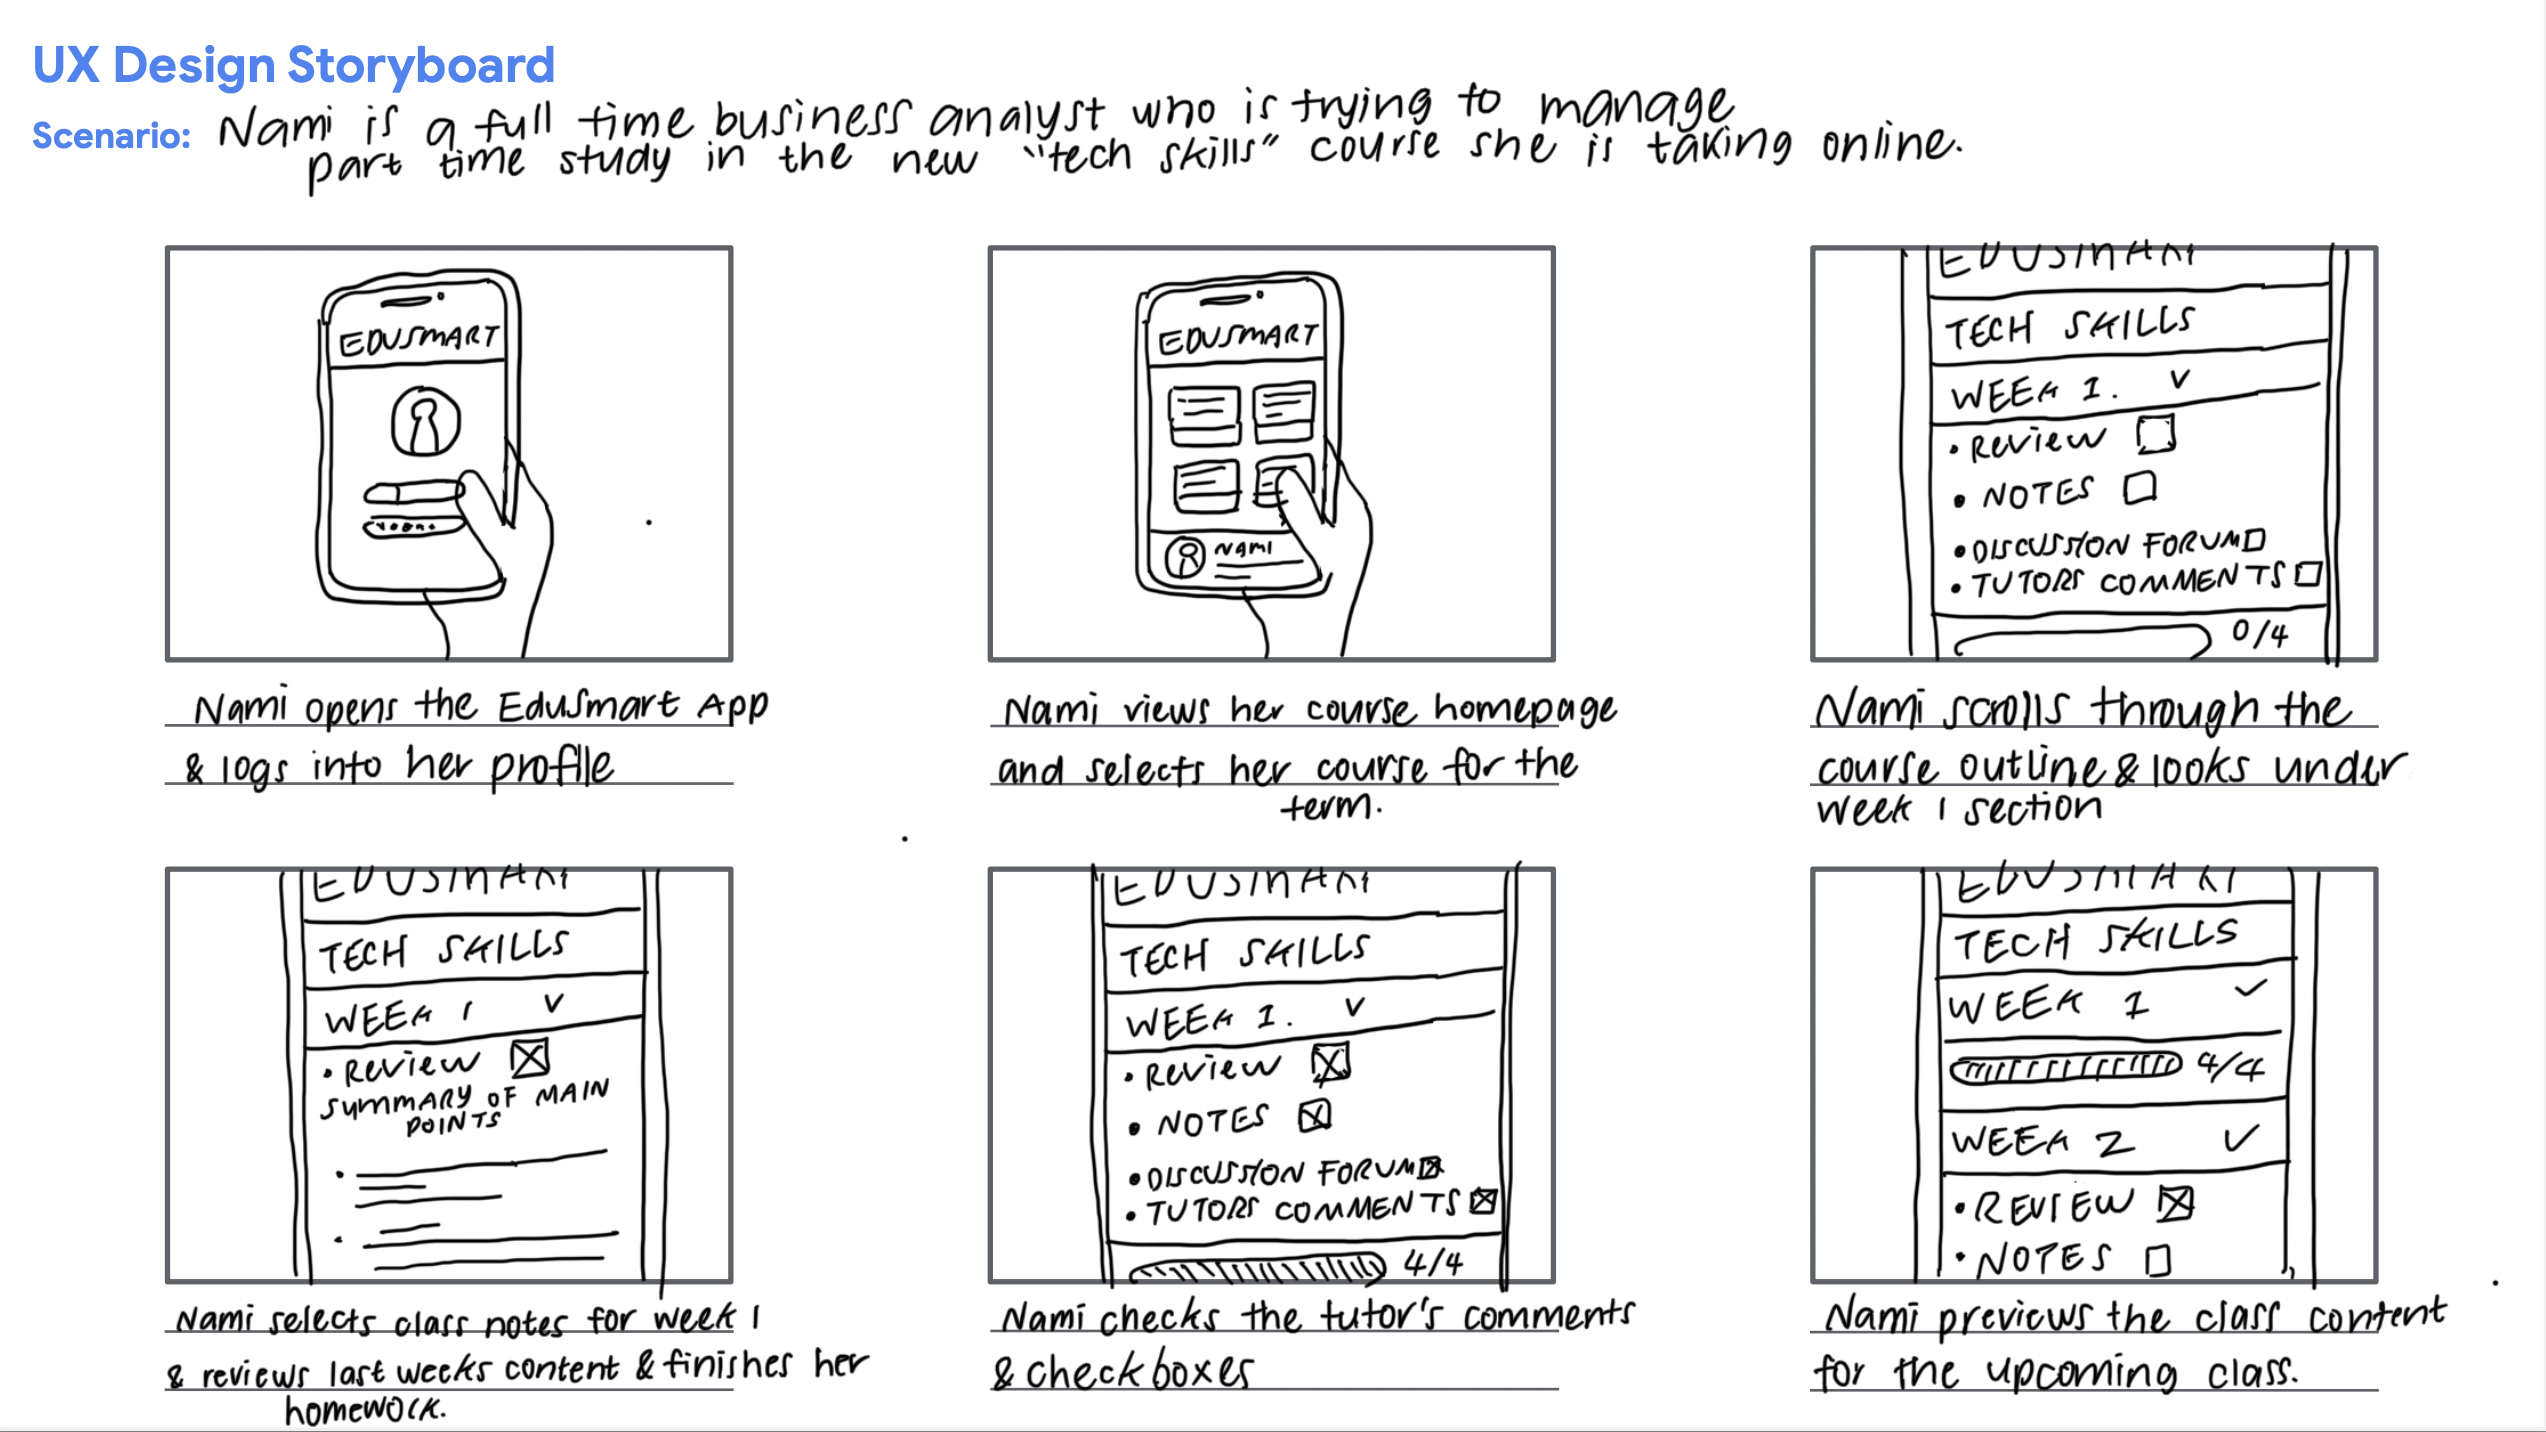 UX Design Storyboard
Scenario: Nami is a full time business analyst who is trying to manage
part time study in the new "tech skills" course she is taking online.
EDUSMART
Nami opens the EduSmart App
& logs into her profile
EDUSMART
NAMI
Nami views her course homepage
and selects her course for the
term.
EDUSMART
TECH SKILLS
WEEK 1.
• Review
• NOTES
• DISCUSSION FORUM
• TUTORS COMMENTS
0/4
Nami scrolls through the
course outline & looks under
week 1 section
EDUSMART
TECH SKILLS
WEEK 1
• Review
SUMMARY OF MAIN
POINTS
Nami selects class notes for week 1
& reviews last weeks content & finishes her
homework.
EDUSMART
TECH SKILLS
WEEK 1.
• Review
• NOTES
• DISCUSSION FORUM
• TUTORS COMMENTS
4/4
Nami checks the tutor's comments
& checkboxes
EDUSMART
TECH SKILLS
WEEK 1
4/4
WEEK 2
• REVIEW
• NOTES
Nami previews the class content
for the upcoming class.